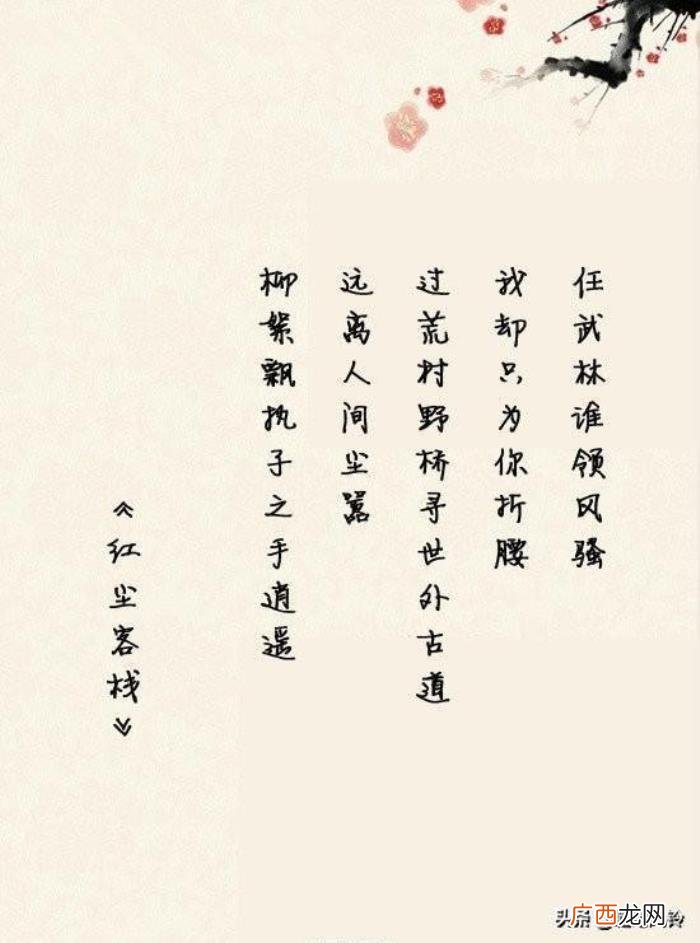 任武林谁领风骚
我却只为你折腰
过荒村野桥寻世外古道
远离人间尘嚣
柳絮飘执子之手逍遥
《红尘客栈》
广西龙网